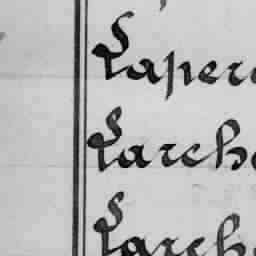 Laper
Larch
Larch